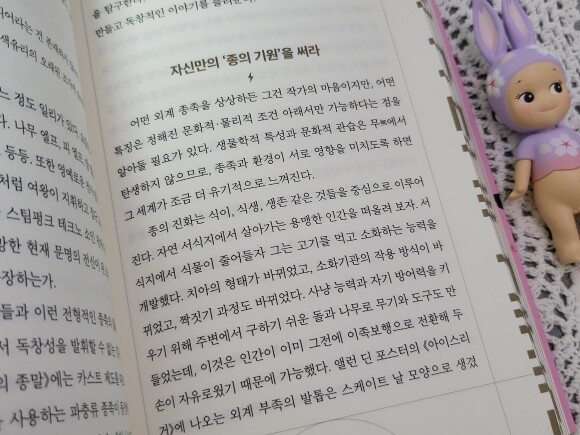 어라는 진 존재
색유리의 오래된
느 정도 일리가 있다.
다. 나무 엘프, 피 엘프,
등등. 또한 명예로운
처럼 여왕이 지휘하고
스팀펑크 테크노
망한 현재 문명의 전신이
장하는가.
들과 이런 전형적인 종족의
서 독창성을 발휘할 수 있는
의 종말》에는 카스트 제도를
사용하는 파충류 종족이
을 탐구한다.
만들고 독창적인 이야기를
자신만의 '종의 기원'을 써라
어떤 외계 종족을 상상하든 그건 작가의 마음이지만, 어떤
특징은 정해진 문화적·물리적 조건 아래서만 가능하다는 점을
알아둘 필요가 있다. 생물학적 특성과 문화적 관습은 무無에서
탄생하지 않으므로, 종족과 환경이 서로 영향을 미치도록 하면
그 세계가 조금 더 유기적으로 느껴진다.
종의 진화는 식이, 식생, 생존 같은 것들을 중심으로 이루어
진다. 자연 서식지에서 살아가는 용맹한 인간을 떠올려 보자. 서
식지에서 식물이 줄어들자 그는 고기를 먹고 소화하는 능력을
개발했다. 치아의 형태가 바뀌었고, 소화기관의 작용 방식이 바
뀌었고, 짝짓기 과정도 바뀌었다. 사냥 능력과 자기 방어력을 키
우기 위해 주변에서 구하기 쉬운 돌과 나무로 무기와 도구도 만
들었는데, 이것은 인간이 이미 그전에 이족보행으로 전환해 두
손이 자유로웠기 때문에 가능했다. 앨런 딘 포스터의 《아이스리
거》에 나오는 외계 부족의 발톱은 스케이트 날 모양으로 생겼